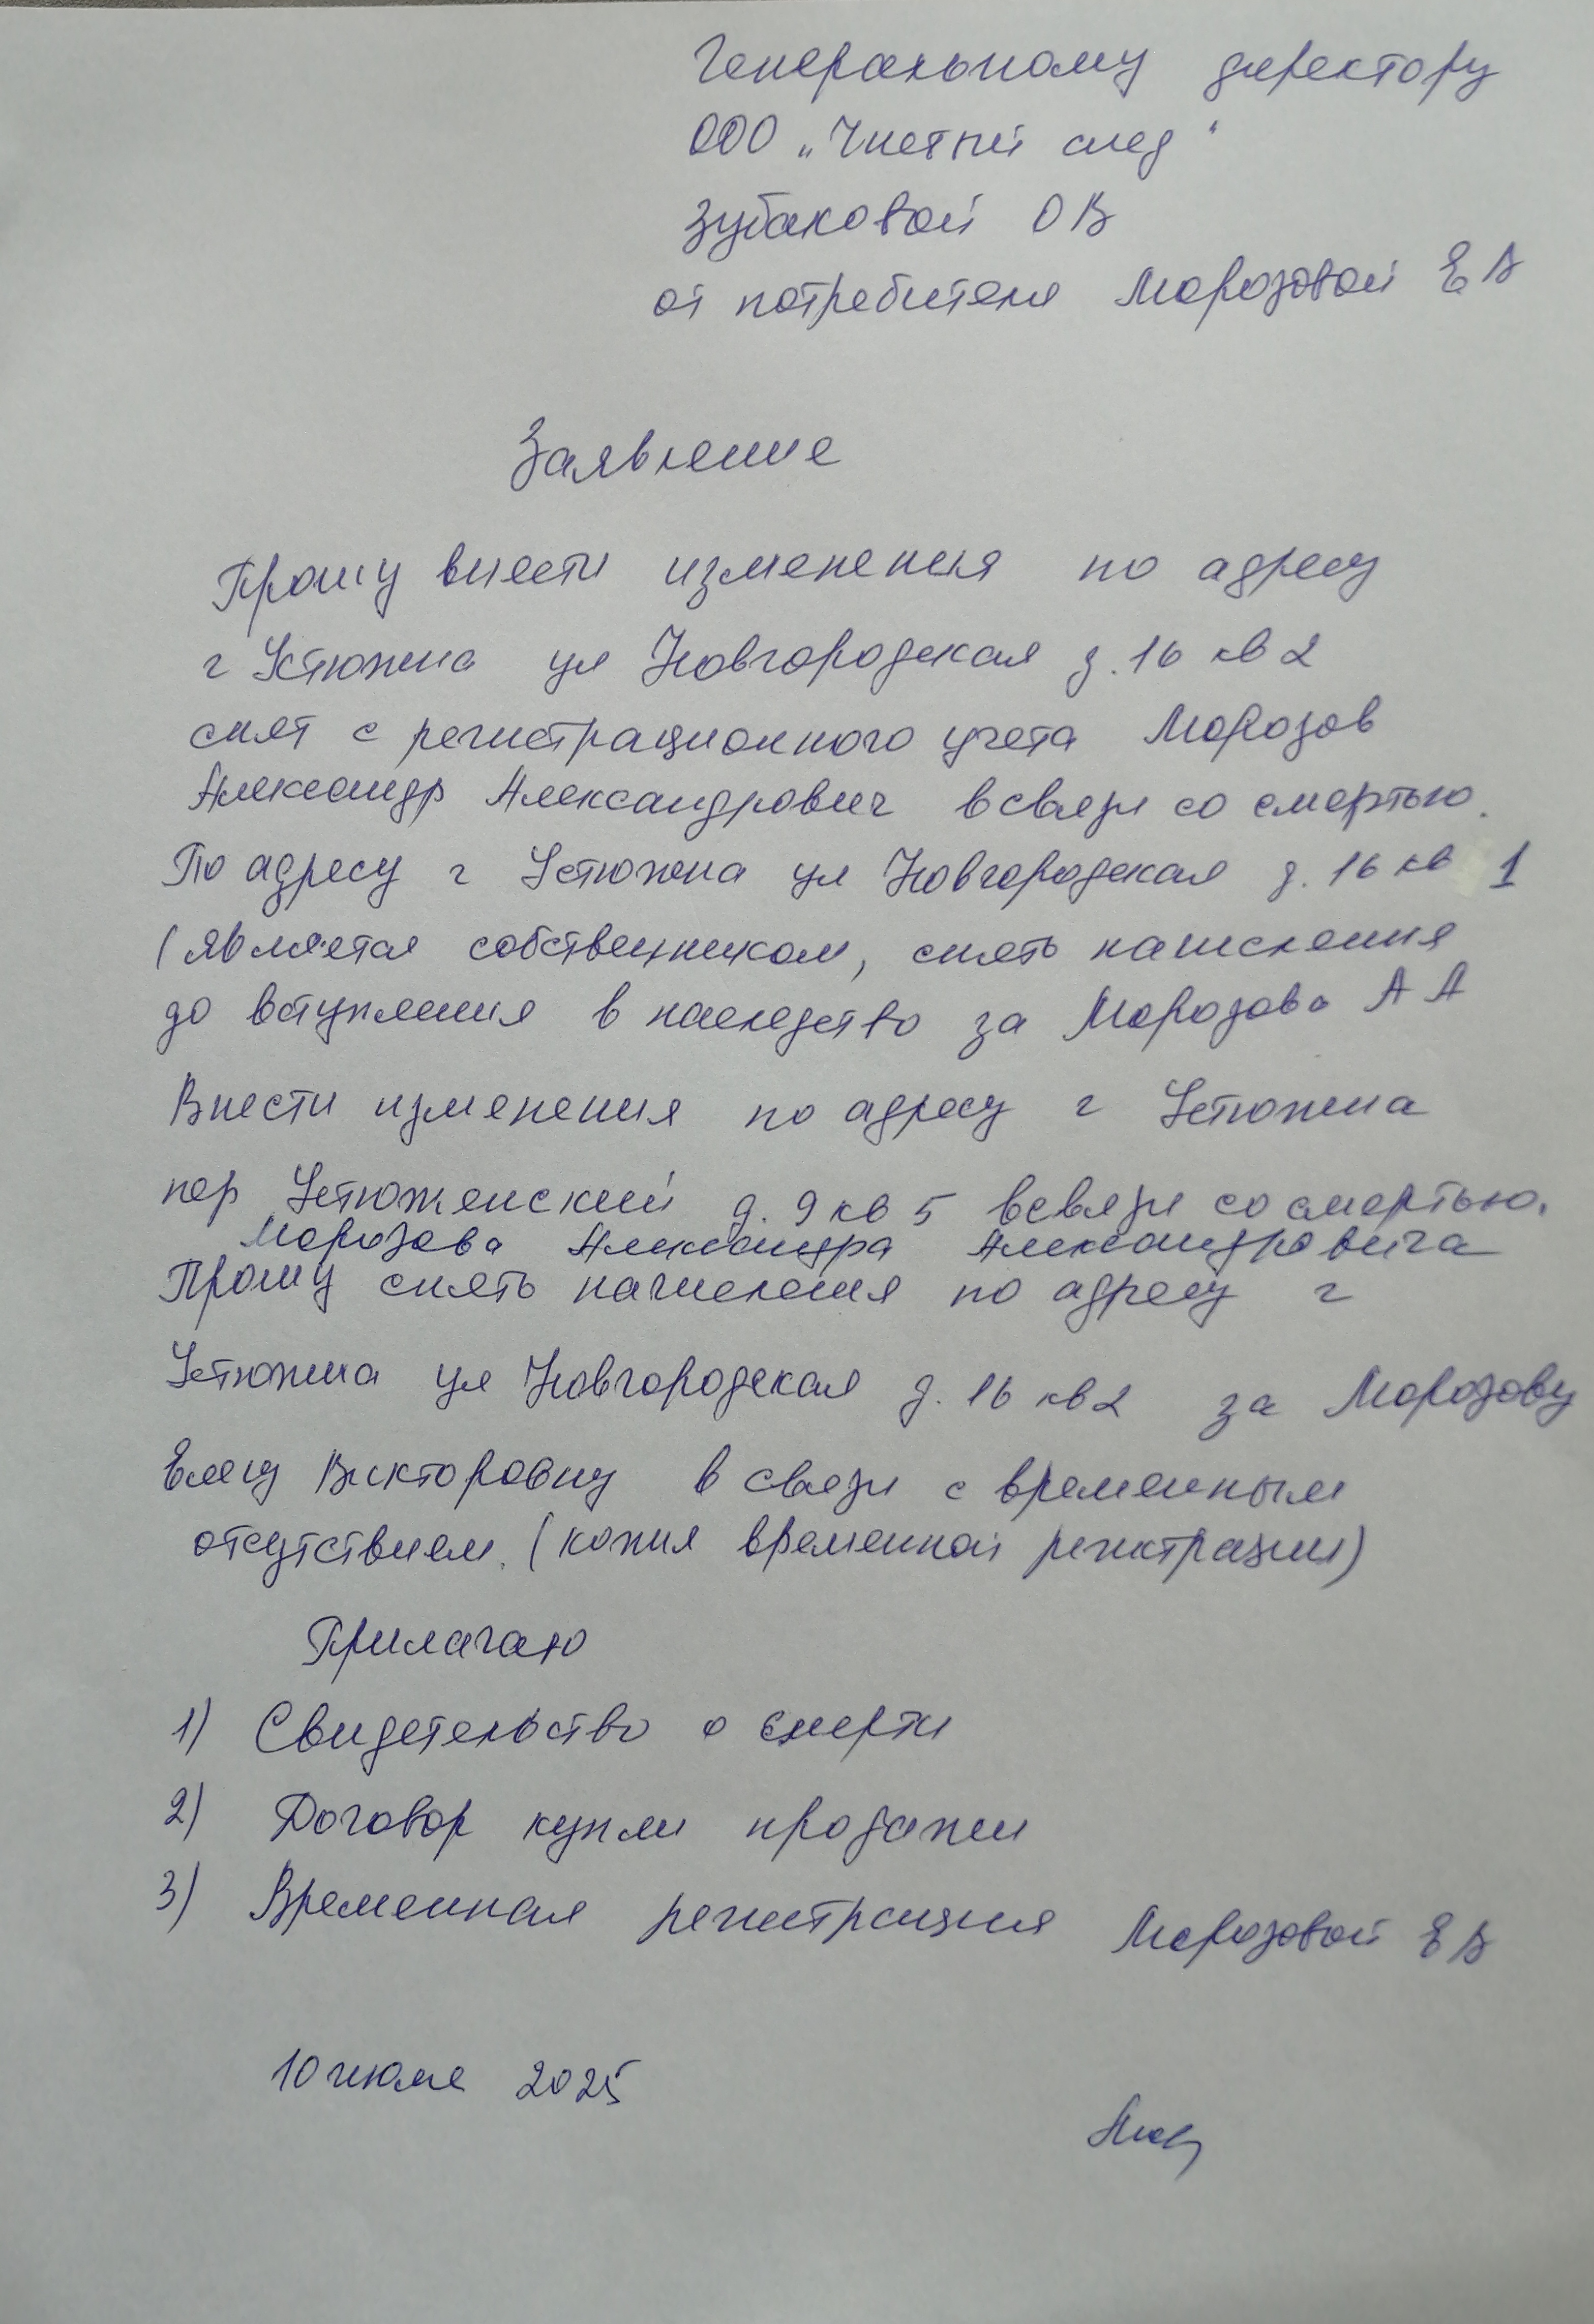 Генеральному директору
ООО „Чистый след"
Зубаковой О В
от потребителя Морозовой Е В
Заявление
Прошу внести изменения по адресу
г Устюжна ул Новгородская д. 16 кв 2
снят с регистрационного учета Морозов
Александр Александрович в связи со смертью.
По адресу г Устюжна ул Новгородская д. 16 кв 1
(является собственником, снять начисления
до вступления в наследство за Морозова А А
Внести изменения по адресу г Устюжна
пер Устюженский д. 9 кв 5 в связи со смертью.
Морозова Александра Александровича
Прошу снять начисления по адресу г
Устюжна ул Новгородская д. 16 кв 2 за Морозову
Елену Викторовну в связи с временным
отсутствием. (копия временной регистрации)
Прилагаю
1) Свидетельство о смерти
2) Договор купли продажи
3) Временная регистрация Морозовой Е В
10 июля 2025